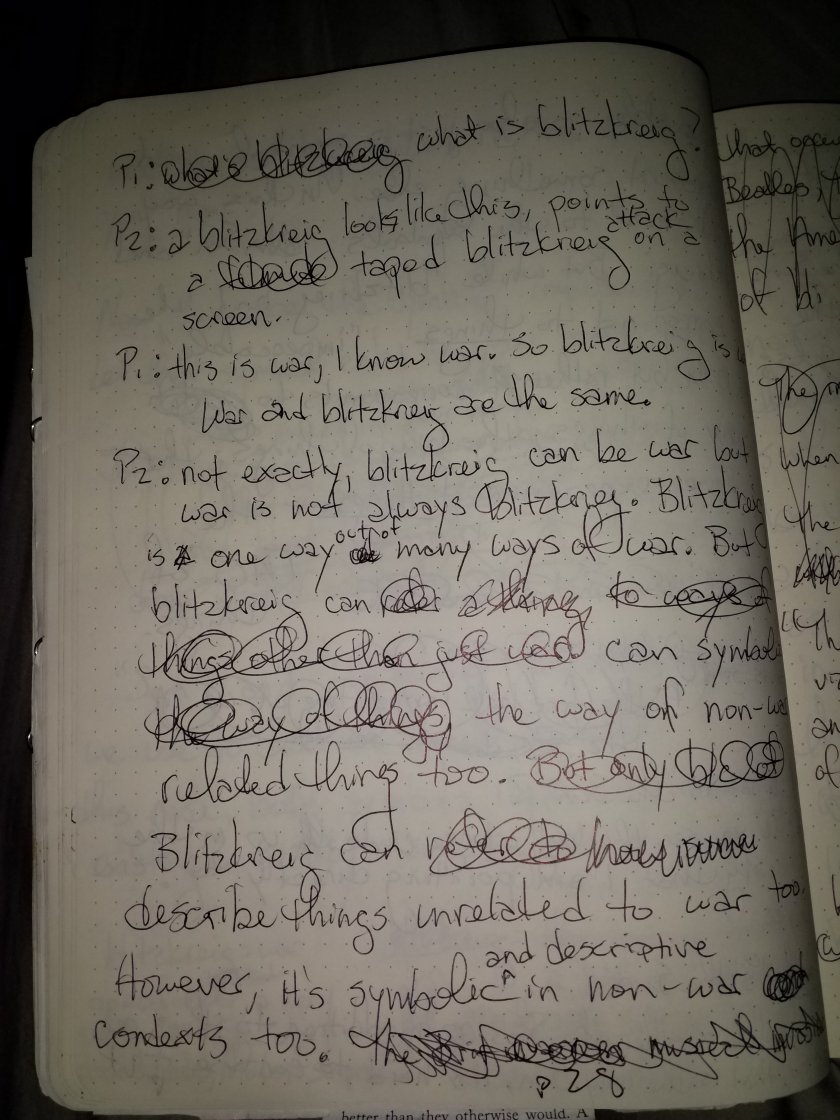 P1: what is blitzkreig?
P2: a blitzkreig looks like this, points to
a taped blitzkreig attack on a
screen.
P1: this is war, I know war. So blitzkreig is
War and blitzkreig are the same.
P2: not exactly, blitzkreig can be war but
war is not always blitzkrieg. Blitzkreig
is one way out of many ways of war. But
blitzkreig can
things other than just war can symbol
the way of things the way of non-wa
related things too. But only
Blitzkreig can
describe things unrelated to war too.
However, it's symbolic and descriptive in non-war
contexts too.
p 28
better than they otherwise would. A
that
Beatles
the Ame
of bli
The
when
the
"Th
an
of